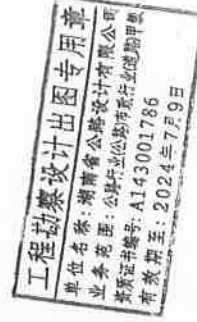 工程勘察设计出图专用章
单位名称:湖南省公路设计有限公司
业务范围:公路行业(公路)市政行业(道路)甲级
资质证书编号:A143001786
有效期至:2024年7月9日